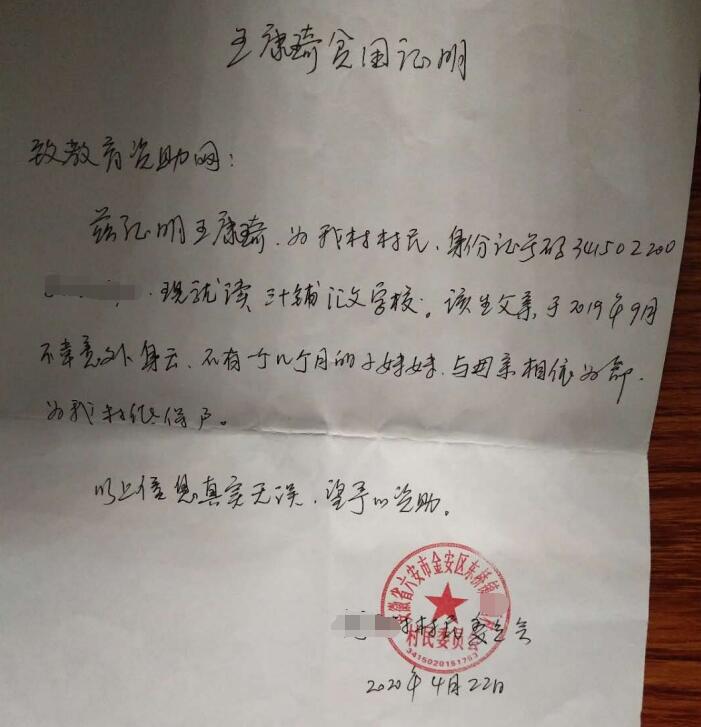 王康琦贫困证明
致教育资助网：
兹证明王康琦、为我村村民、身份证号码341502200
现就读三十铺汇文学校。该生父亲于2019年9月
不幸意外身亡、还有一个几个月的小妹妹、与母亲相依为命、
为我村低保户。
以上信息真实无误、望予以资助。
安徽省六安市金安区东桥镇
村民委员会
3415020151753
村村民委员会
2020年4月22日